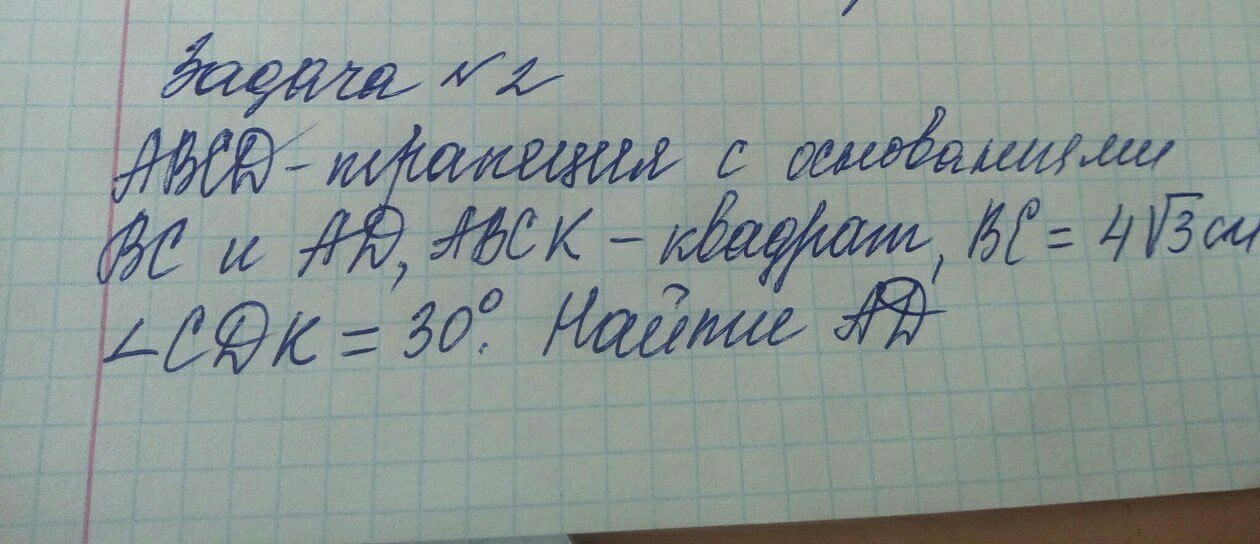 Задача №2
ABCD - трапеция с основаниями
BC и AD, ABCK - квадрат, BC = 4√3 см
∠CDK = 30°. Найти AD